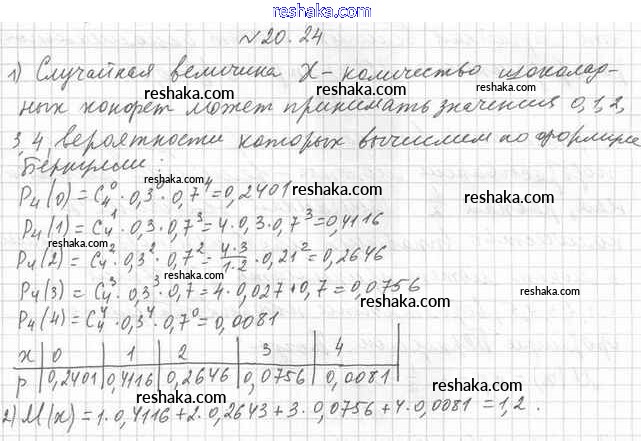 reshaka.com
№20.24
1) Случайная величина X - количество шоколад-
ных конфет может принимать значения 0,1,2,
3,4, вероятности которых вычислим по формуле
Бернулли:
P₄(0) = C₄⁰ · 0,3⁰ · 0,7⁴ = 0,2401 reshaka.com reshaka.com
P₄(1) = C₄¹ · 0,3 · 0,7³ = 4 · 0,3 · 0,7³ = 0,4116
reshaka.com reshaka.com
P₄(2) = C₄² · 0,3² · 0,7² = 4·3/1·2 · 0,21² = 0,2646
reshaka.com
P₄(3) = C₄³ · 0,3³ · 0,7 = 4 · 0,027 · 0,7 = 0,0756
reshaka.com
P₄(4) = C₄⁴ · 0,3⁴ · 0,7⁰ = 0,0081
x | 0 | 1 | 2 | 3 | 4
p | 0,2401 | 0,4116 | 0,2646 | 0,0756 | 0,0081
reshaka.com reshaka.com
2) M(x) = 1 · 0,4116 + 2 · 0,2643 + 3 · 0,0756 + 4 · 0,0081 = 1,2 .
reshaka.com